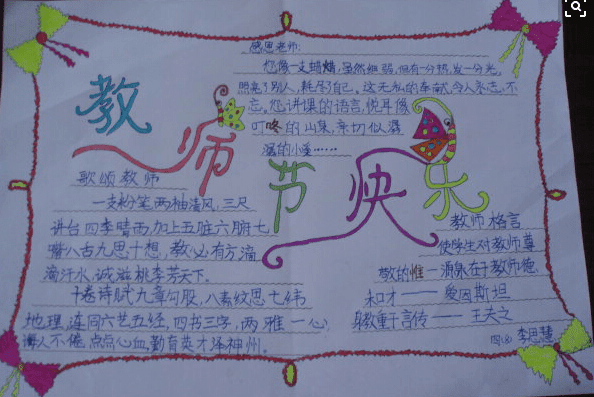 感恩老师:
您像一支蜡烛,虽然细弱,但有一分热,发一分光,
照亮了别人,耗尽了自己。这无私的奉献,令人永志不
忘。您讲课的语言,悦耳像
叮咚的山泉,亲切似潺
潺的小溪……
教师节快乐
歌颂教师
一支粉笔两袖清风,三尺
讲台四季晴雨,加上五脏六腑七
嘴八舌九思十想,教必有方滴
滴汗水,诚滋桃李芳天下。
十卷诗赋九章勾股,八索文思七纬
地理,连同六艺五经,四书三字,两雅一心,
诲人不倦,点点心血,勤育英才泽神州。
教师格言
使学生对教师尊
敬的惟一源泉在于教师德
和才——爱因斯坦
身教重于言传——王夫之
四(8) 李思慧